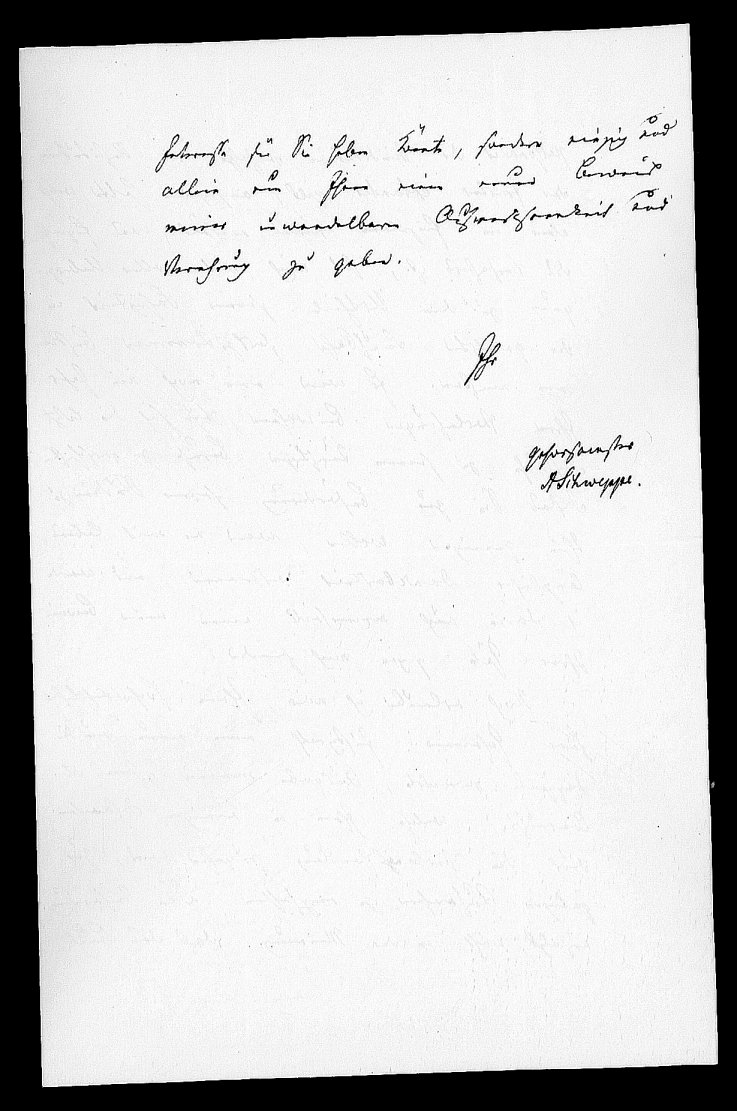 Interesse für Sie haben könte, sondern einzig und
allein um Ihnen einen neuen Beweis
meiner unwandelbaren Aufmerksamkeit und
Verehrung zu geben.
Ihr
gehorsamster
ASchweppe.